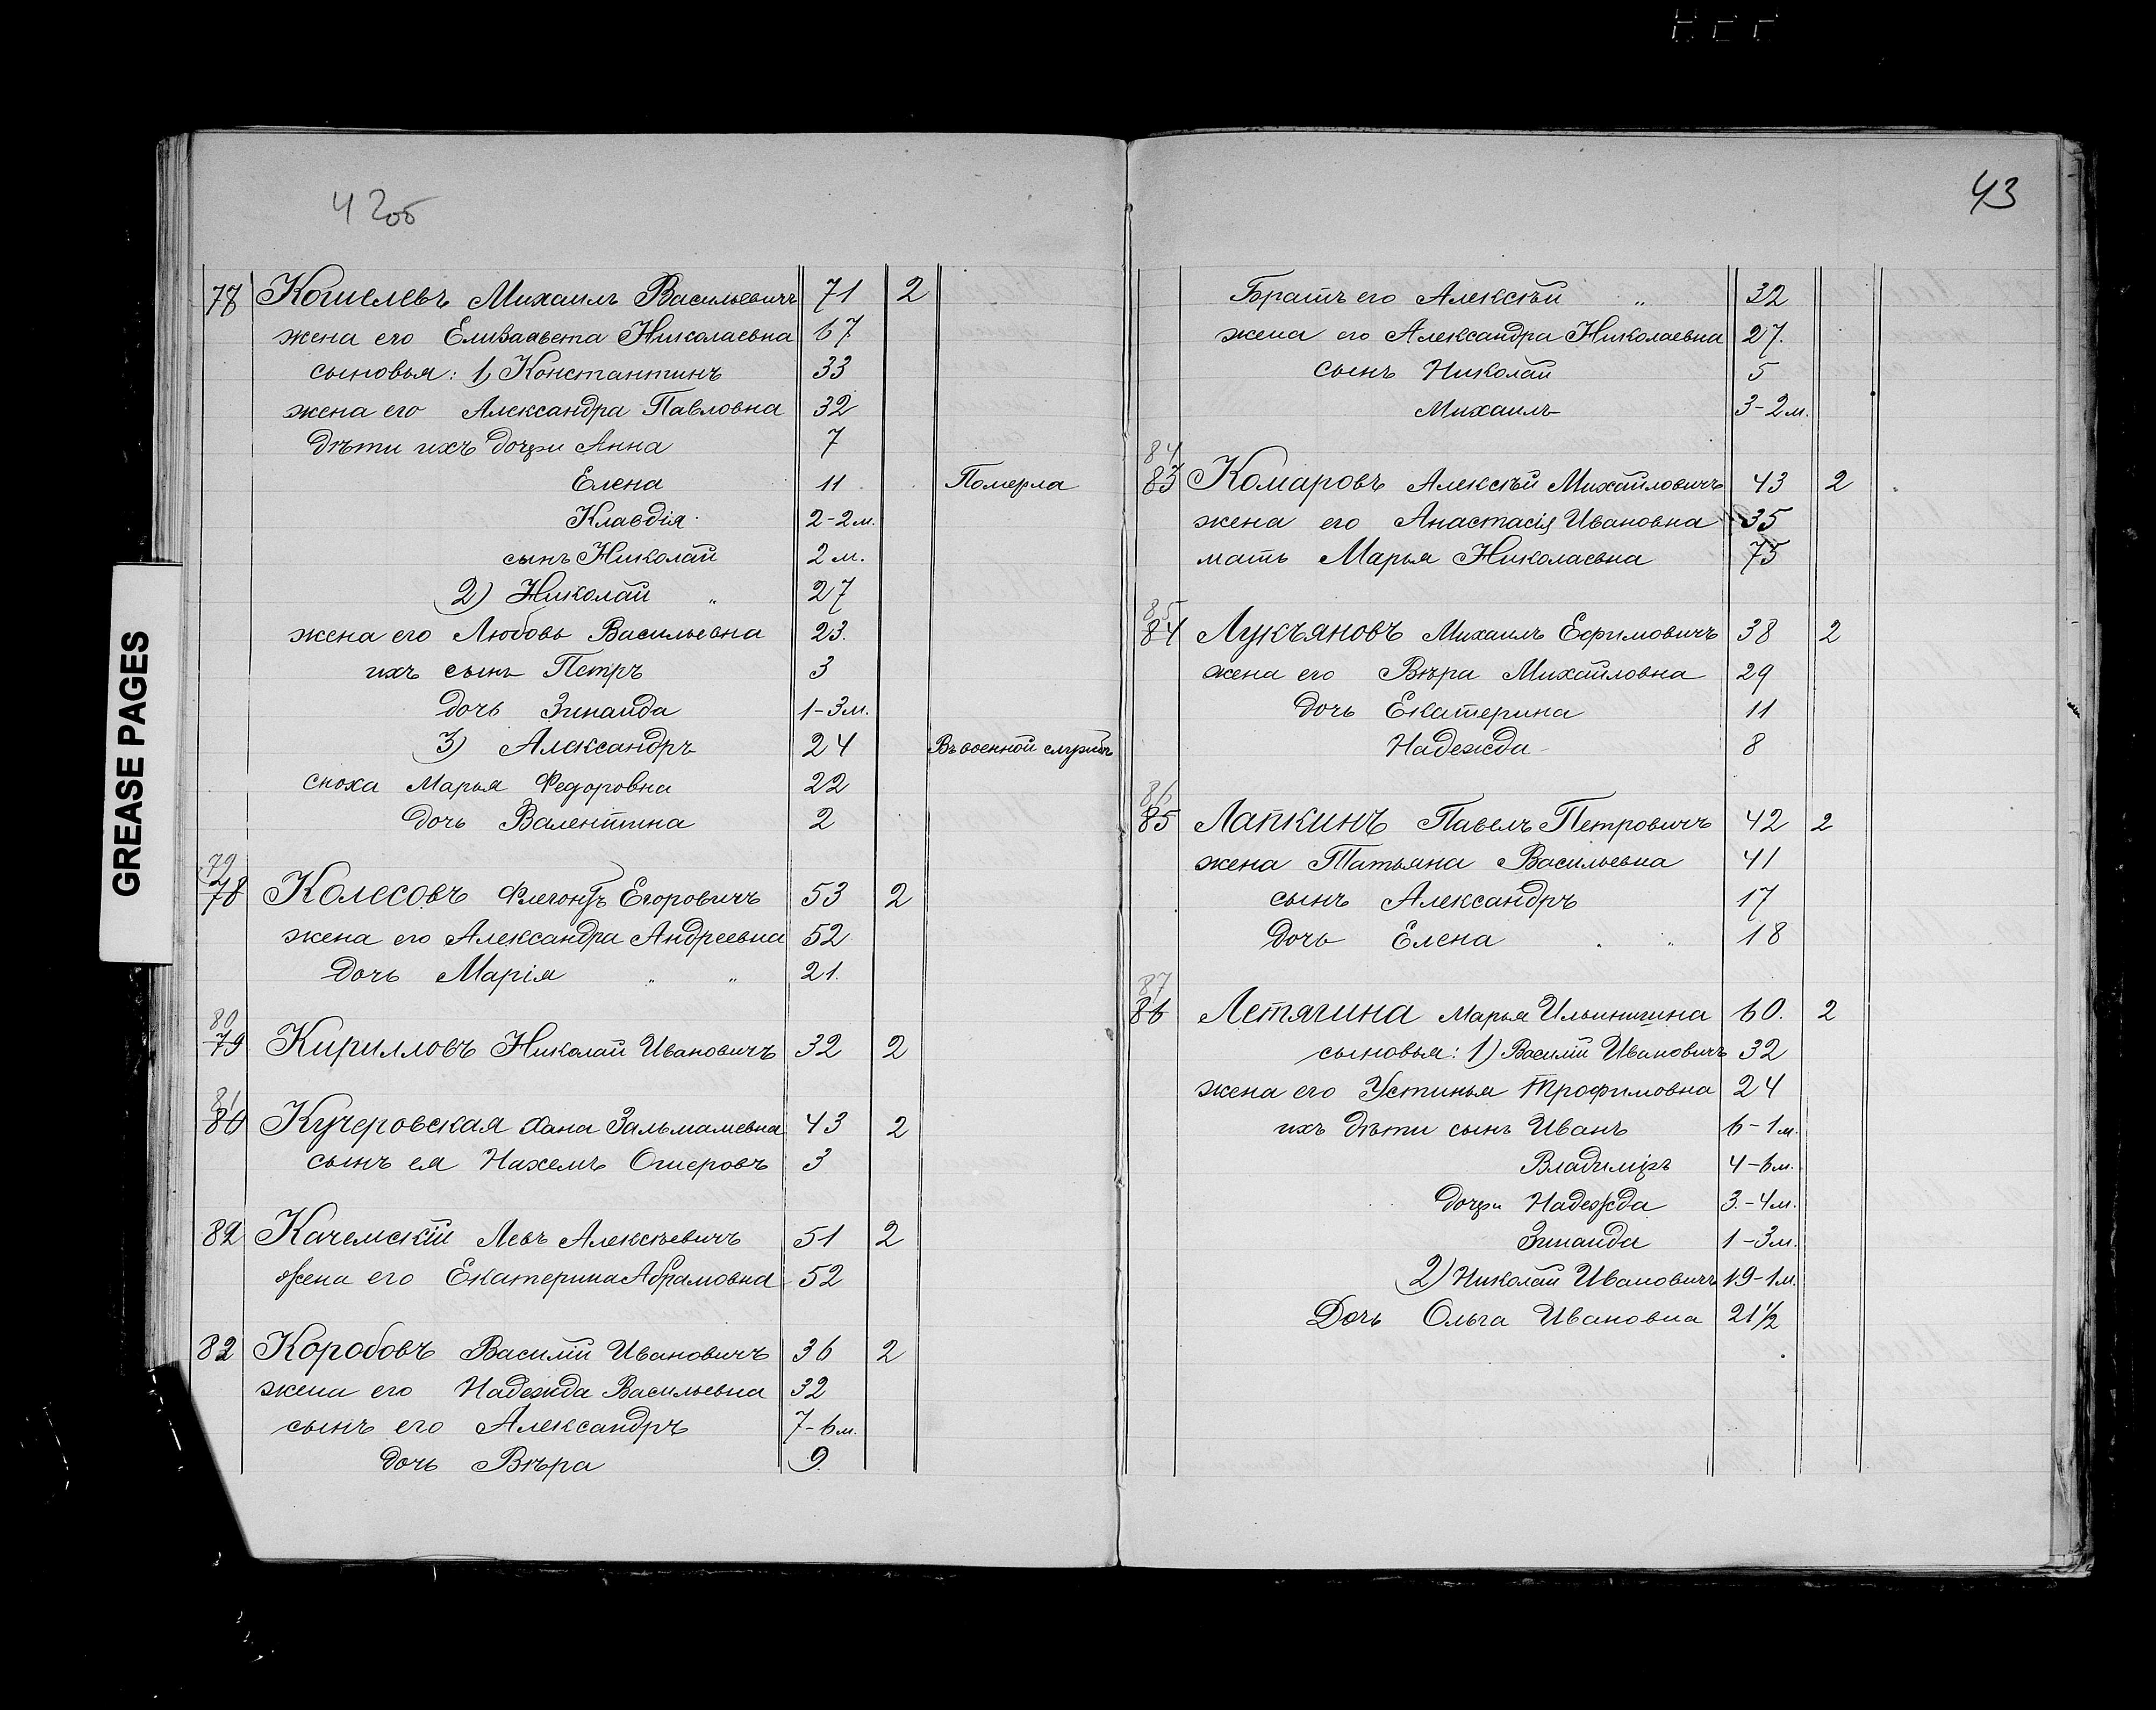 42об
78 Кошелевъ Михаилъ Васильевичъ 71 2
жена его Елизавета Николаевна 67
сыновья: 1) Константинъ 33
жена его Александра Павловна 32
дѣти ихъ дочери Анна 7
Елена 11 Померла
Клавдія 2-2 м.
сынъ Николай 2 м.
2) Николай " 27
жена его Любовь Васильевна 23.
ихъ сынъ Петръ 3
дочь Зинаида 1-3 м.
3) Александръ 24 Въ военной службѣ
сноха Марья Федоровна 22
дочь Валентина 2
79
78 Колесовъ Флегонтъ Егоровичъ 53 2
жена его Александра Андреевна 52
дочь Марія " " 21.
80
79 Кирилловъ Николай Ивановичъ 32 2
81
80 Кучеровская Хана Зальмамевна 43 2
сынъ ея Нахемъ Ошеровъ 3
82 Качемскій Левъ Алексѣевичъ 51 2
жена его Екатерина Абрамовна 52
82 Коробовъ Василій Ивановичъ 36 2
жена его Надежда Васильевна 32
сынъ его Александръ 7-6 м.
дочь Вѣра 9
GREASE PAGES
43
Братъ его Алексѣй " 32
жена его Александра Николаевна 27.
сынъ Николай 5
Михаилъ 3-2 м.
84
83 Комаровъ Алексѣй Михайловичъ 43 2
жена его Анастасія Ивановна 35
мать Марья Николаевна 75
85
84 Лукъяновъ Михаилъ Ефимовичъ 38 2
жена его Вѣра Михайловна 29
дочь Екатерина 11
Надежда 8
86
85 Лапкинъ Павелъ Петровичъ 42 2
жена Татьяна Васильевна 41
сынъ Александръ 17
дочь Елена " 18
87
86 Летягина Марья Ильинишна 60. 2
сыновья: 1) Василій Ивановичъ 32
жена его Устинья Трофимовна 24
ихъ дѣти сынъ Иванъ 6-1 м.
Владиміръ 4-6 м.
дочери Надежда 3-4 м.
Зинаида 1-3 м.
2) Николай Ивановичъ 19-1 м.
Дочь Ольга Ивановна 21½